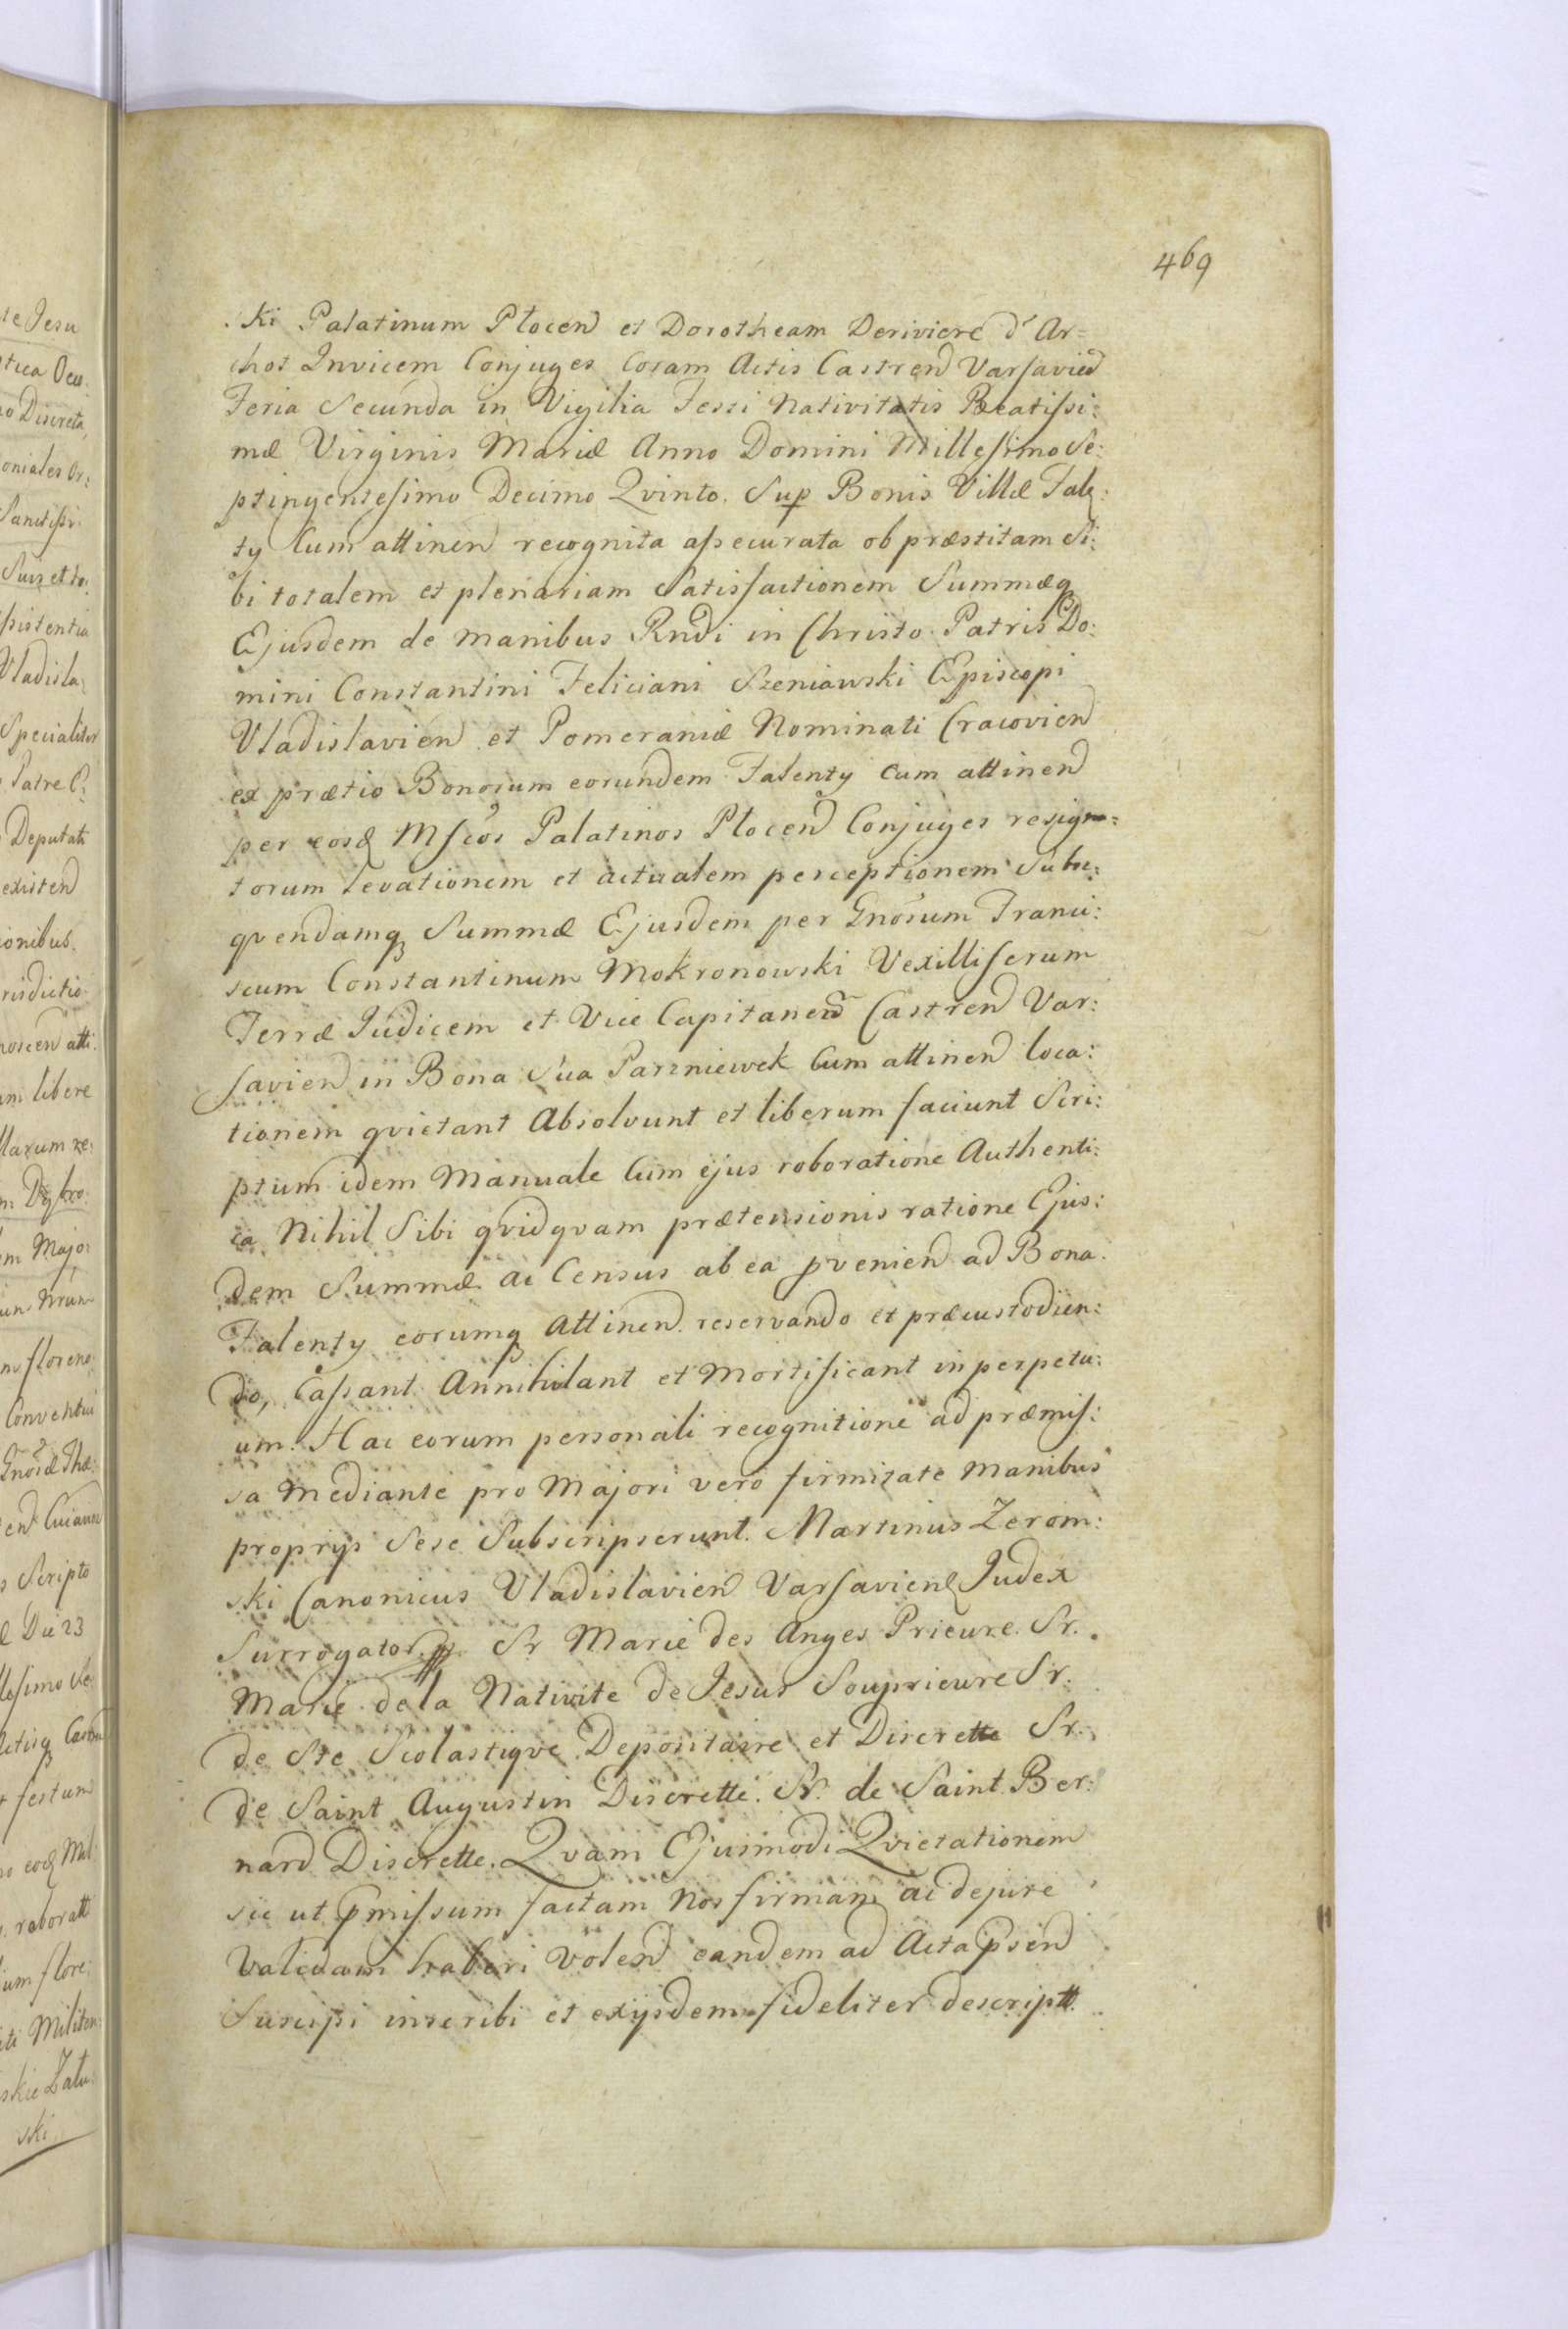 469
ski Palatinum Plocen et Dorotheam Deriviere d'Ar=
chot Invicem Conjuges Coram Actis Castren Varsavien
Feria Secunda in Vigilia Festi Nativitatis Beatissi:
mæ Virginis Mariæ Anno Domini Millesimo Se:
ptingentesimo Decimo Qvinto. Sup Bonis Villæ Fale:
ty Cum attinen recognita assecurata ob præstitam Si:
bi totalem et plenariam Satisfactionem Summæq
Ejusdem de manibus Rndi in Christo Patris Do:
mini Constantini Feliciani Szeniawski Episcopi
Vladislavien et Pomeraniæ Nominati Cracovien
ex prætio Bonorum eorundem Falenty cum attinen
per eosd Mfcos Palatinos Plocen Conjuges resigna:
torum levationem et actualem perceptionem Subse:
qvendamq Summæ Ejusdem per Gnosum Franci:
scum Constantinum Mokronowski Vexilliferum
Terræ Judicem et Vice Capitaneu Castren Var:
savien in Bona Sua Parzniewek Cum attinen loca:
tionem qvietant Absolvunt et liberum faciunt Scri:
ptum idem Manuale Cum ejus roboratione Authenti:
ca Nihil Sibi qvidqvam prætensionis ratione Ejus:
dem Summæ ac Census ab ea pvenien ad Bona
Falenty eorumq Attinen reservando et præcustodien:
do, Cassant Annihilant et Mortificant in perpetu:
um. Hac eorum personali recognitione ad præmis:
sa mediante pro Majori vero firmitate manibus
proprijs Sese Subscripserunt. Martinus Zerom:
ski Canonicus Vladislavien Varsavien Judex
Surrogator Sr Marie des Anges Prieure. Sr.
Marie de la Nativite de Jesus Souprieure Sr.
de Ste Scolastiqve Depositaire et Discrette Sr.
de Saint Augustin Discrette. Sr. de Saint Ber:
nard Discrette. Qvam Ejusmodi Qvietationem
sic ut pmissum factam Nos firmam ac de jure
Validam haberi Volen eandem ad Acta psen
Suscipi inscribi et exijsdem fideliter descriptt.